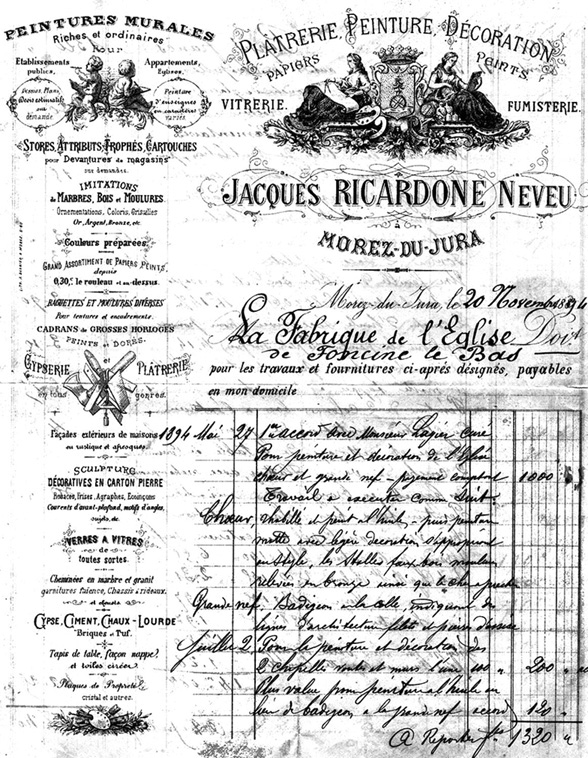 PEINTURES MURALES
Riches et ordinaires
Pour
Etablissements publics,
Appartements, Eglises,
Dessins, Plans, Devis estimatifs sur demande
Peinture d'enseignes en caractères variés.
STORES, ATTRIBUTS, TROPHÉS, CARTOUCHES
pour Devantures de magasins
sur demandes.
IMITATIONS
de MARBRES, BOIS et MOULURES.
Ornementations, Coloris, Grisailles
Or, Argent, Bronze, etc.
Couleurs préparées.
GRAND ASSORTIMENT DE PAPIERS PEINTS,
depuis
0,30c. le rouleau et au-dessus.
BAGUETTES ET MOULURES DIVERSES
Pour tentures et encadrements.
CADRANS de GROSSES HORLOGES
PEINTS et DORÉS.
GYPSERIE et PLÂTRERIE
en tous genres.
Façades extérieurs de maisons
ou rustique et afresques.
SCULPTURE
DÉCORATIVES EN CARTON PIERRE
Rosaces, Frises, Agraphes, Ecoinçons
Courents d'avant-plafond, motifs d'angles,
sujets, etc.
VERRES A VITRES
de
toutes sortes.
Cheminées en marbre et granit
garnitures faïence, Chassis à rideaux.
GYPSE, CIMENT, CHAUX - LOURDE
Briques et Tuf.
Tapis de table, façon nappe
et toiles cirées.
Plaques de Propreté
cristal et autres.
PLÂTRERIE, PEINTURE, DÉCORATION
PAPIERS PEINTS
VITRERIE. FUMISTERIE.
JACQUES RICARDONE NEVEU
à
MOREZ-DU-JURA
Morez-du-Jura, le 20 Novembre 1894
La Fabrique de l'Eglise Doit
de Foncine le Bas
pour les travaux et fournitures ci-après désignés, payables
en mon domicile
1894 Mai 27 1er accord avec Monsieur Lagier Curé
Pour peinture et décoration de l'Eglise
chœur et grande nef - payement comptant 1000 "
Travail à exécuter comme suit.
Chœur, rhabillé et peint à l'huile - puis peinture
matte avec légère décoration s'appropriant
au Style, les Stalles faux bois moulures
relevées en bronze ainsi que
Grande nef. Badigeon à la colle, indiquant des
lignes d'architecture filet et
Juillet 2 Pour la peinture et décoration des
2 Chapelles voute et murs l'une 100 " 200 "
Plus value pour peinture à l'huile au
lieu de badigeon à la grande nef accord 120 "
A Reporter fcs 1320 "